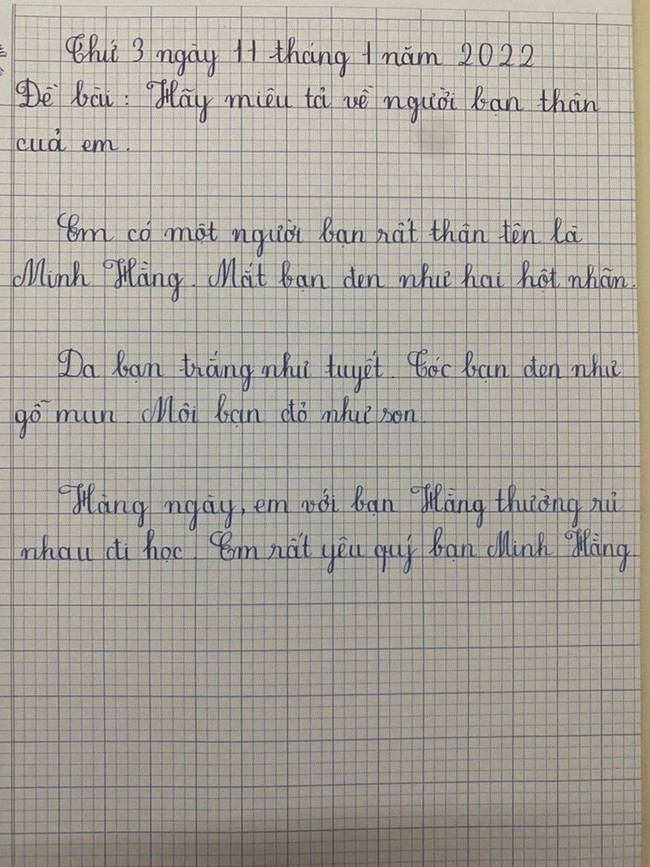 Thứ 3 ngày 11 tháng 1 năm 2022
Đề bài: Hãy miêu tả về người bạn thân
cuả em.
Em có một người bạn rất thân tên là
Minh Hằng. Mắt bạn đen như hai hột nhãn.
Da bạn trắng như tuyết. Tóc bạn đen như
gỗ mun. Môi bạn đỏ như son.
Hằng ngày, em với bạn Hằng thường rủ
nhau đi học. Em rất yêu quý bạn Minh Hằng